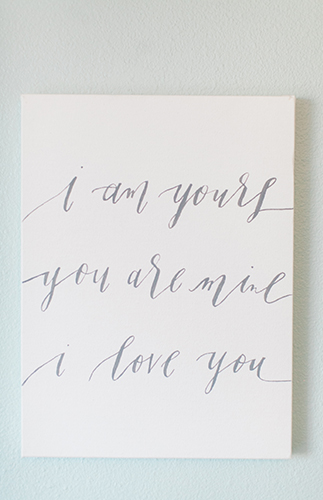 i am yours
you are mine
i love you